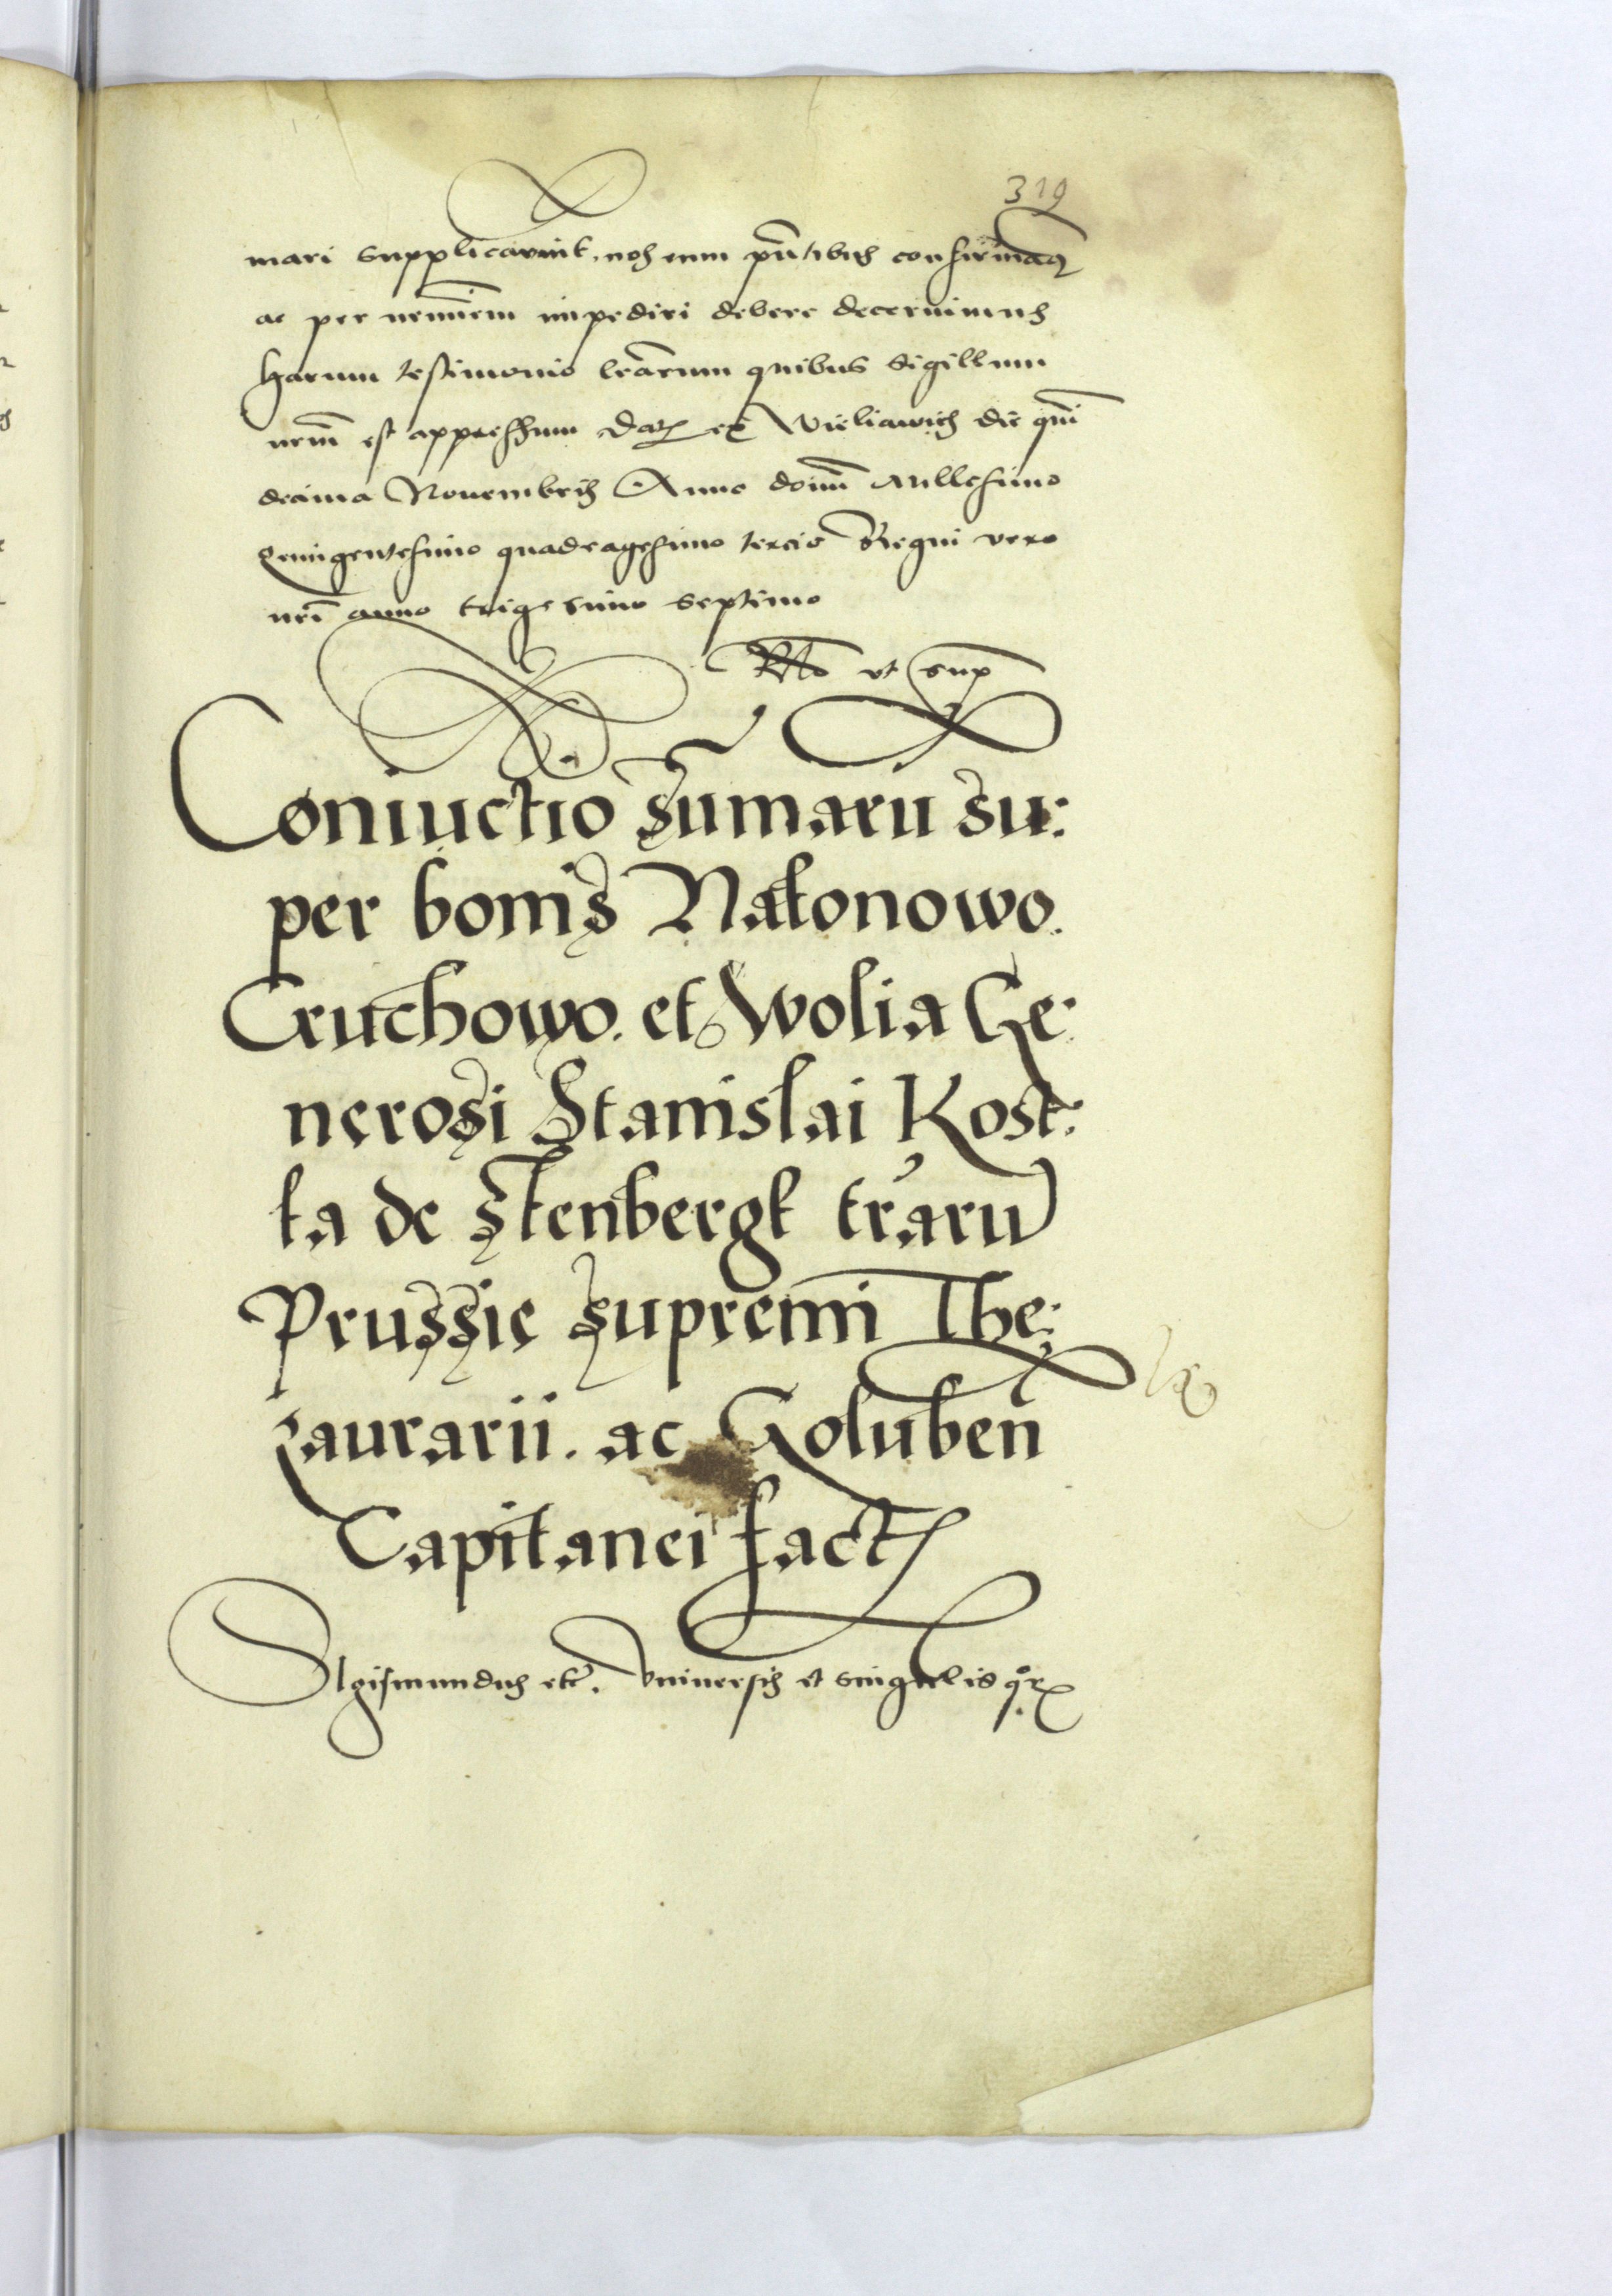 319
mari supplicavit, nos eum pñtibus confirmaꝫ
ac per neminem impediri debere decernimus
Harum testimonio lrarum quibus sigillum
nrum est appressum Datꝭ ex Wieliawicz die quin
decima Novembris Anno domini Millesimo
Quingentesimo quadragesimo tercio Regni vero
nri anno trigesimo septimo
Rlo ut sup
Coniuctio sumaru su:
per bonis Natonowo.
Cruchowo. et Wolia Ge:
nerosi Stanislai Kost:
ka de Stenbergk trarũ
Prussie supremi The:
zaurarii. ac Goluben̄
Capitanei fact̃
Sigismundus etc̃. Universis et singulis qorꝫ